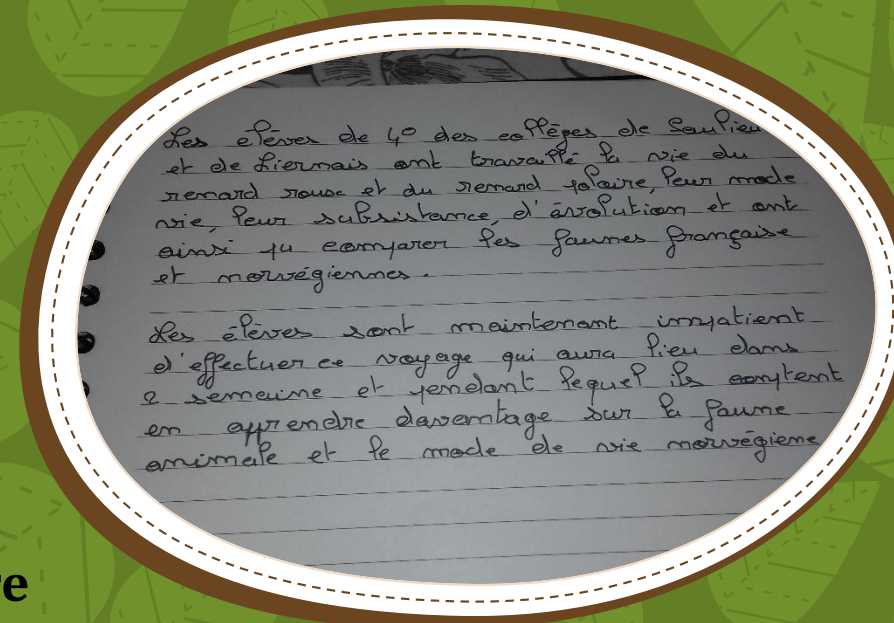 Les élèves de 4° des collèges de Saulieu
et de Liernais ont travaillé la vie du
renard roux et du renard polaire, leur mode
vie, leur subsistance, d'évolution et ont
ainsi pu comparer les faunes française
et norvégiennes.
Les élèves sont maintenant impatient
d'effectuer ce voyage qui aura lieu dans
2 semaine et pendant lequel ils comptent
en apprendre davantage sur la faune
animale et le mode de vie norvégiene
re